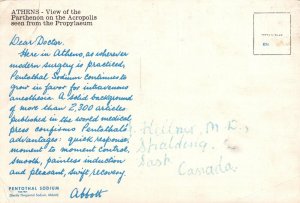 ATHENS - View of the
Parthenon on the Acropolis
seen from the Propylaeum
Dear Doctor:
Here in Athens, as wherever
modern surgery is practiced,
Pentothal Sodium continues to
grow in favor for intravenous
anesthesia. A solid background
of more than 2,300 articles
published in the world medical
press confirms Pentothal's
advantages: quick response,
moment to moment control,
smooth, painless induction
and pleasant, swift recovery.
Abbott
PENTOTHAL SODIUM
(Sterile Thiopental Sodium, Abbott)
M. D.,
Spalding,
Sask
Canada.